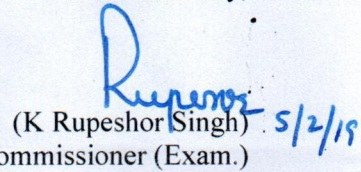 Rupeshor
(K Rupeshor Singh) 5/2/19
ommissioner (Exam.)